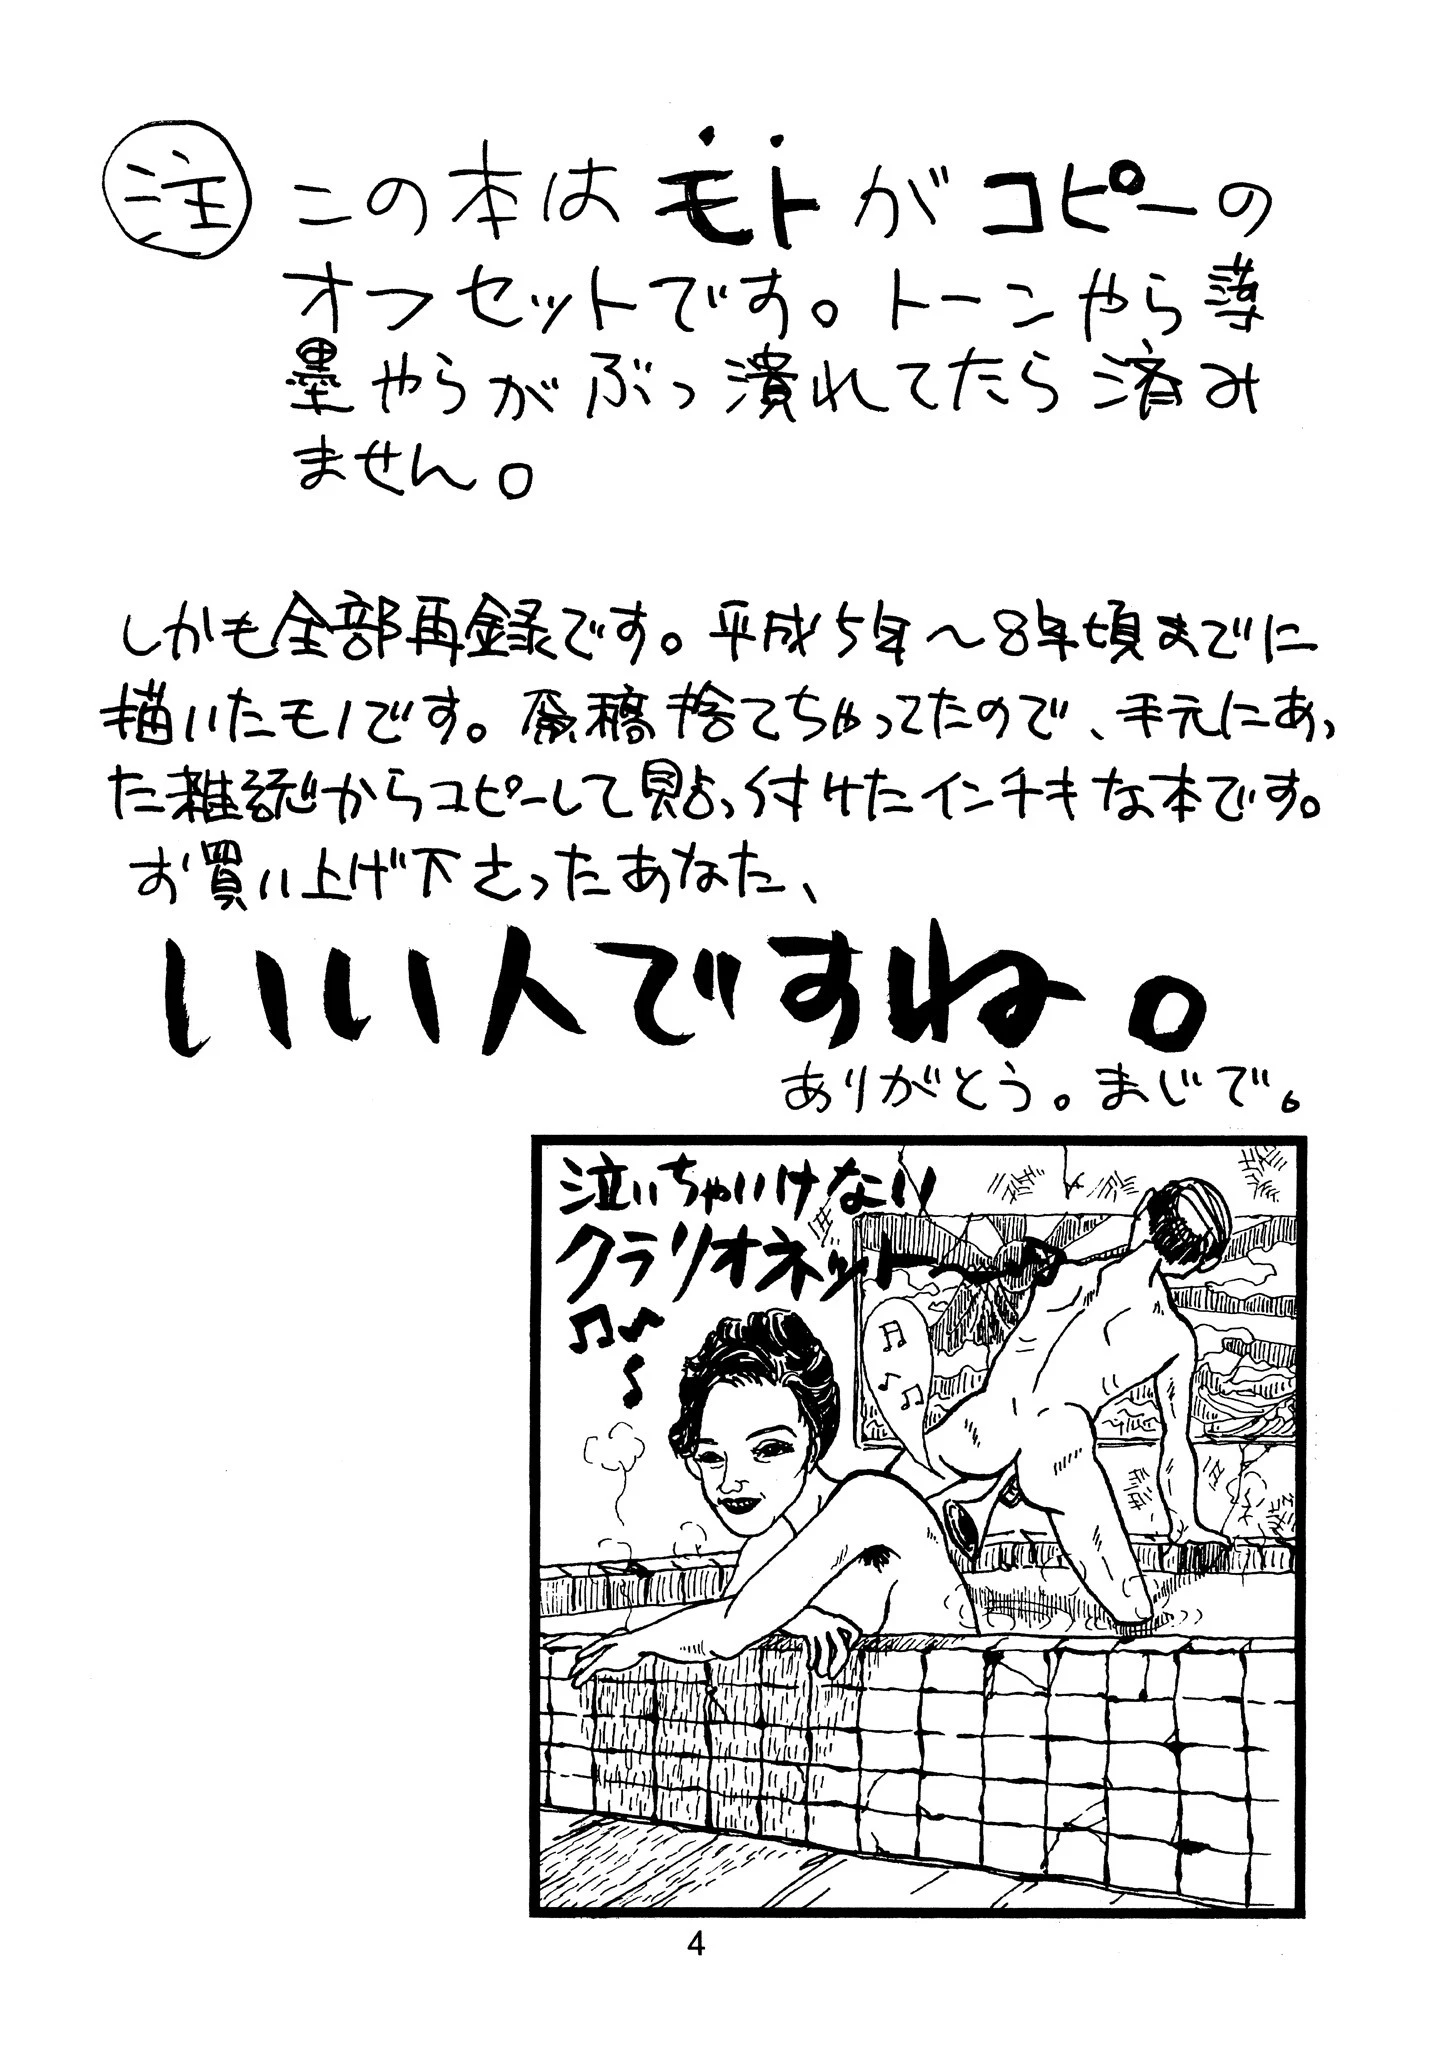 注 この本はモトがコピーの
オフセットです。トーンやら薄
墨やらがぶっ潰れてたら済み
ません。
しかも全部再録です。平成5年～8年頃までに
描いたモノです。原稿捨てちゃってたので、手元にあっ
た雑誌からコピーして貼っ付けたインチキな本です。
お買い上げ下さったあなた、
いい人ですね。
ありがとう。まじで。
泣いちゃいけない
クラリオネットー
4